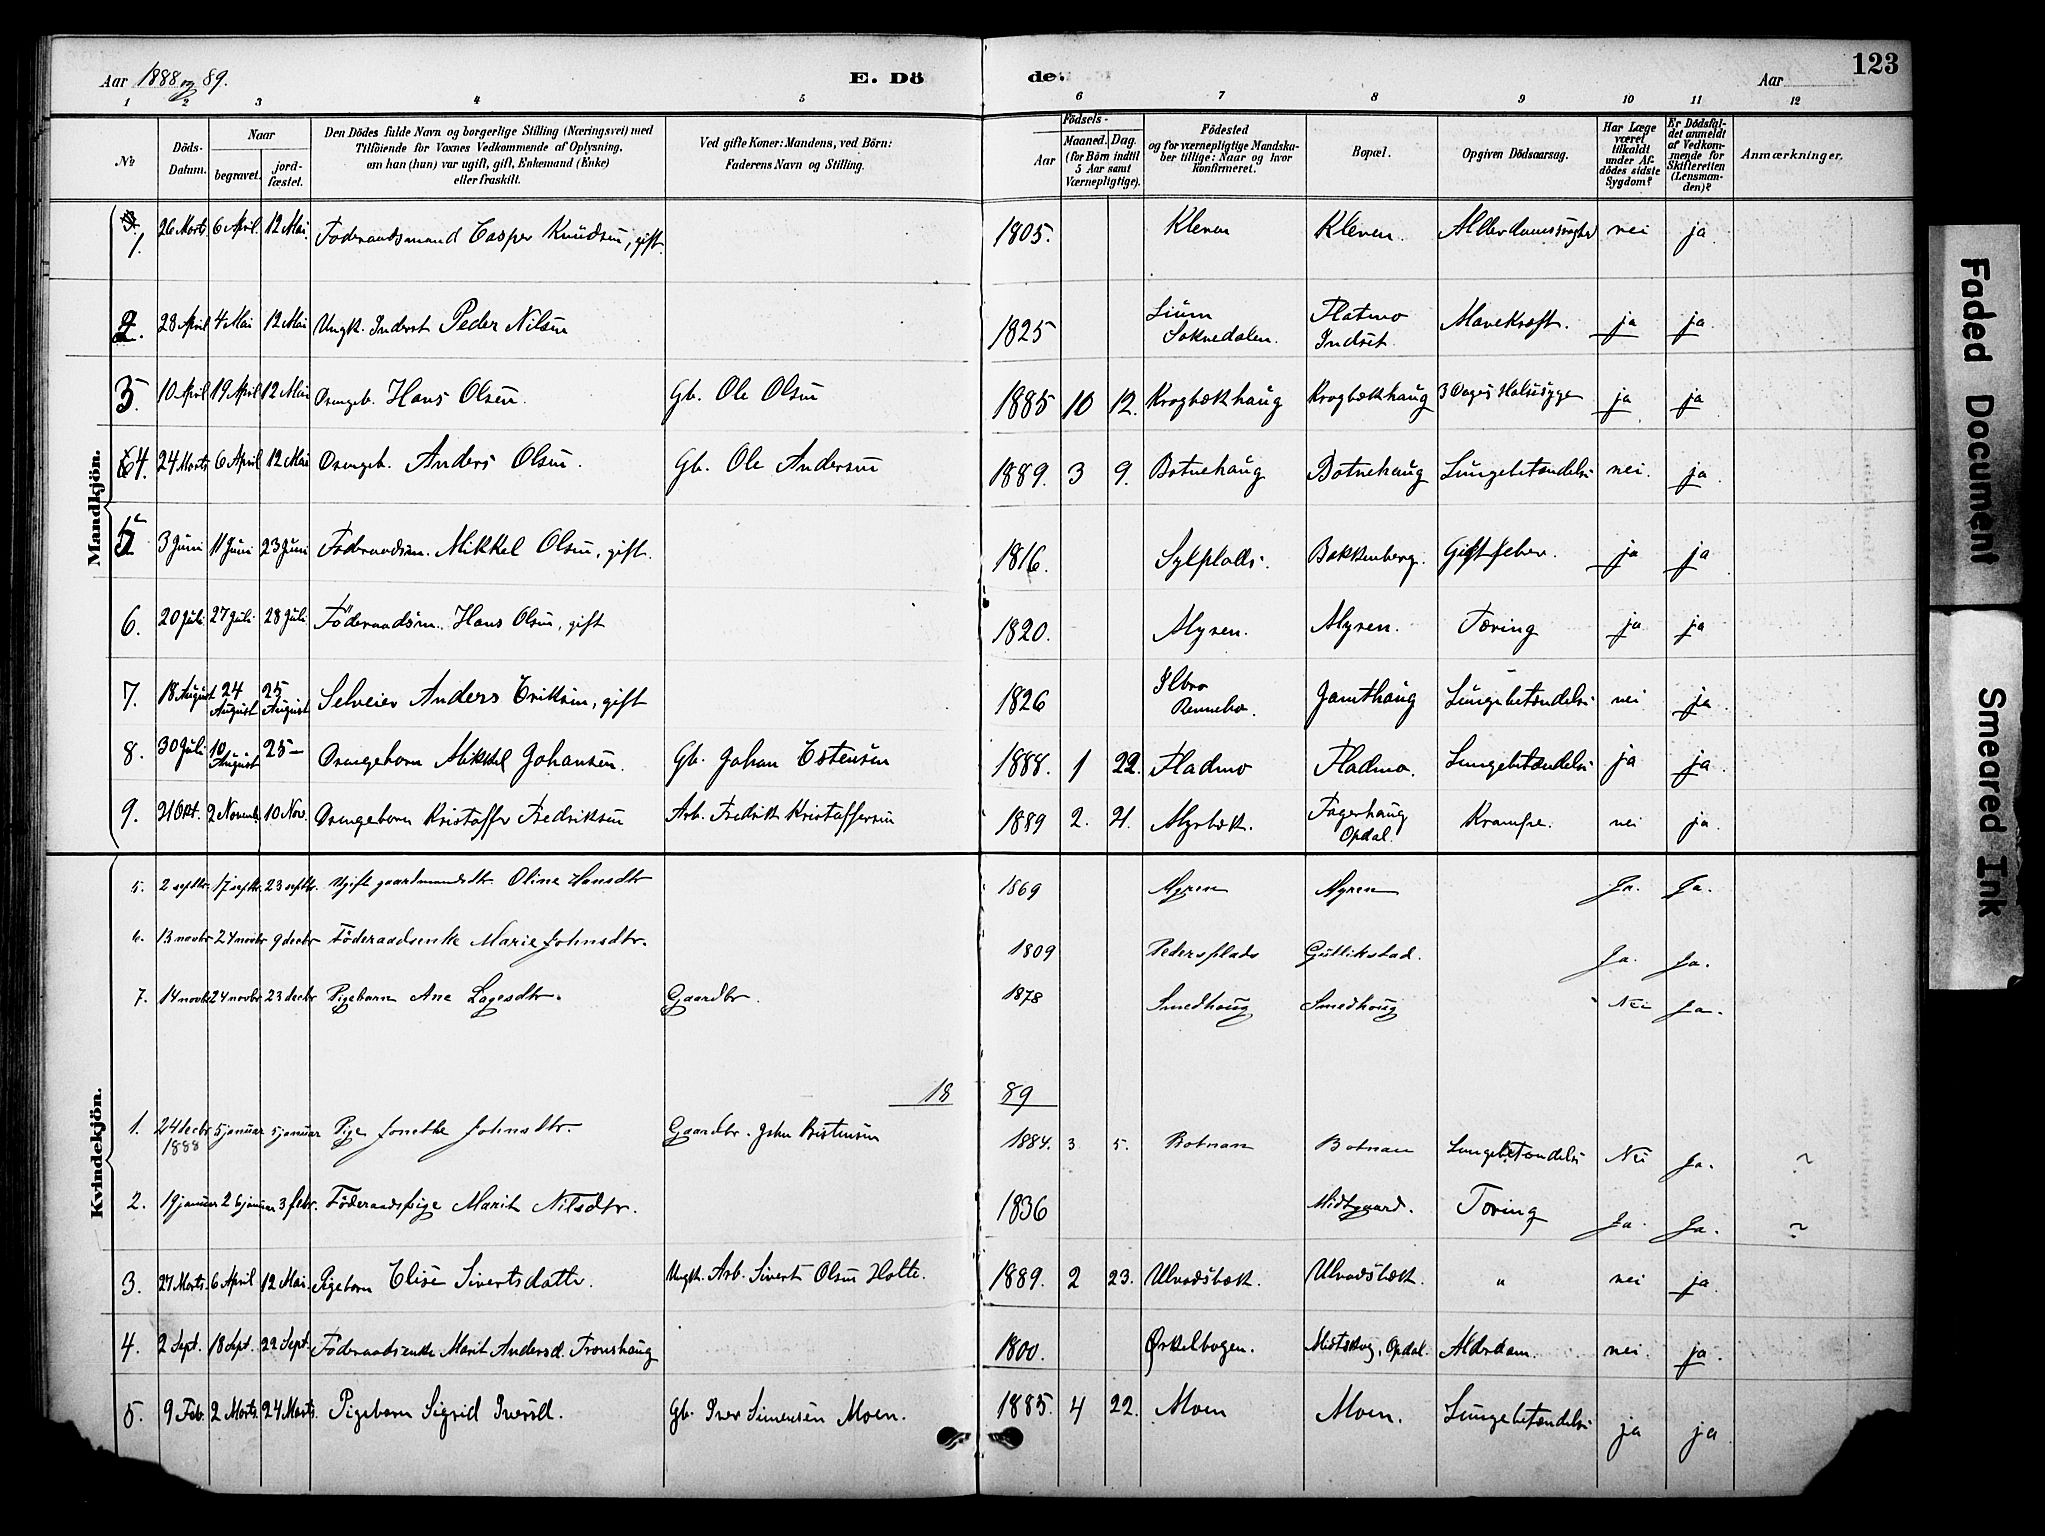 Aar 1888 og 89.
E. Dö
de.
Aar
123
1 2 3 4 5 6 7 8 9 10 11 12
No
Döds-Datum.
Naar
begravet.
jord-fæstet.
Den Dödes fulde Navn og borgerlige Stilling (Næringsvei) med
Tilföiende for Voxnes Vedkommende af Oplysning,
om han (hun) var ugift, gift, Enkemand (Enke)
eller fraskilt.
Ved gifte Koner: Mandens, ved Börn:
Faderens Navn og Stilling.
Födsels-
Aar
Maaned. Dag.
(for Börn indtil
5 Aar samt
Værnepligtige).
Födested
og for værnepligtige Mandska-
ber tillige: Naar og hvor
Konfirmeret.
Bopæl.
Opgiven Dödsaarsag.
Har Læge
været
tilkaldt
under Af-
dödes sidste
Sygdom?
Er Dödsfal-
det anmeldt
af Vedkom-
mende for
Skifteretten
(Lensman-
den)?
Anmærkninger.
Mandkjön.
1. 26 Marts 6 April 12 Mai Föderaadsmand Casper Knudsen, gift. 1805. Kleven Kleven. nei ja.
2. 28 April 4 Mai 12 Mai Ungk. Inderst Peder Nilsen 1825 Lium Soknedalen. Flatmo Indset. Mavekræft. ja ja.
3. 10 April 19 April 12 Mai Drengeb. Hans Olsen. Gb. Ole Olsen 1885 10 12. Krogbækhaug Krogbækhaug 3 Dages Halssyge ja ja
4. 24 Marts 6 April 12 Mai Drengeb. Anders Olsen. Gb. Ole Andersen 1889. 3 9. Botnehaug Botnehaug Lungebetændelse nei. ja.
5 3 Juni 11 Juni 23 Juni Föderaadsm. Mikkel Olsen, gift. 1816. Sylplads. Bakkenberg. Giftfeber. ja ja
6. 20 Juli 27 Juli 28 Juli Föderaadsm. Hans Olsen, gift 1820. Myren. Myren. Tæring ja ja
7. 18 August 24 August 25 August Selveier Anders Eriksen, gift 1826 Ilbro Rennebo. Jamthaug Lungebetændelse nei ja.
8. 30 Juli 10 August 25 — Drengebarn Mikkel Johansen. Gb. Johan Estensen 1888. 1 22. Fladmo Fladmo. Lungebetændelse ja ja.
9. 21 Okt. 2 Novemb. 10 Nov. Drengebarn Kristoffer Fredriksen Arb. Fredrik Kristoffersen 1889 2. 21. Myrbæk. Fagerhaug Opdal. Krampe. nei ja.
Kvindekjön.
5. 2 septbr. 17 septb. 23 septbr. Ugift gaardmandsdtr. Oline Hansdtr 1869 Myren Myren Ja. Ja.
6. 13 novbr 24 novbr 9 decbr Föderaadsenke Marie Johnsdtr. 1809 Pedersplads Gullikstad. Ja. Ja.
7. 14 novbr 24 novbr 23 decbr Pigebarn Ane Lagesdtr. Gaardbr. 1878 Smedhoug Smedhoug Nei Ja.
18 89
1. 24 decbr 1888 5 januar 5 januar Pige Jonetke Johnsdtr. Gaardbr. John Kristensen 1884. 3 5. Botnan Botnan Lungebetændelse Nei Ja. ~
2. 19 januar 26 januar 3 febr. Föderaadspige Marit Nilsdtr. 1836 Midtgaard. Tæring Ja. Ja. ~
3. 27 Marts. 6 April 12 Mai. Pigebarn Elise Sivertsdatter. Ungk. Arb. Sivert Olsen Holte. 1889. 2 23. Ulvadsbæk. Ulvadsbæk. " nei ja.
4. 2 Sept. 18 Sept. 22 Sept. Föderaadsenke Marit Andersd. Tronshaug 1800. Ørkelbogen. Midtskog, Opdal. Alderdom. nei. ja.
5. 9 Feb. 2 Marts. 24 Marts. Pigebarn Sigrid Iversd. Gb. Iver Simensen Moen. 1885. 4 22. Moen Moen. Lungebetændelse ja ja
Faded Document
Smeared Ink